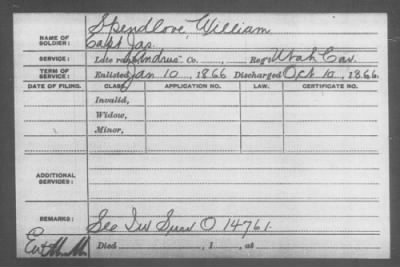 NAME OF SOLDIER: Spendlove, William
Capt Jas.
SERVICE: Late rank, Andrus' Co. , Reg't Utah Cav.
TERM OF SERVICE: Enlisted Jan 10 , 1866 Discharged Oct 10 , 1866.
DATE OF FILING. CLASS. APPLICATION NO. LAW. CERTIFICATE NO.
Invalid,
Widow,
Minor,
ADDITIONAL SERVICES:
REMARKS: See Ind Surv O 14761.
Died , 1 , at